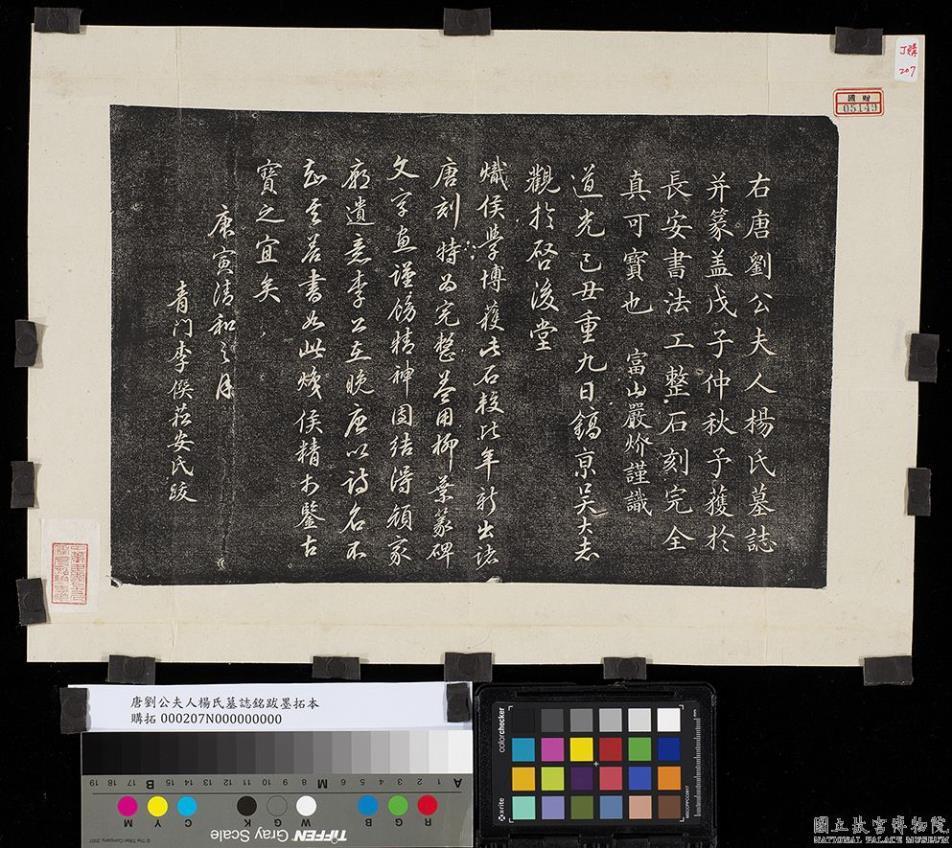 右唐劉公夫人楊氏墓誌
并篆盖戊子仲秋予獲於
長安書法工整石刻完全
真可寶也 富山嚴謹識
道光己丑重九日鎬京吳大志
觀於啓後堂
熾侯學博獲此石校比年新出諸
唐刻特為完整盖用柳葉篆碑
文字畫謹飭精神團結得顏家
廟遺意李公在晚唐以詩名不
知其善書如此熾侯精於鑒古
寶之宜矣
庚寅清和之月
青門李僎菘安氏跋
J購
207
國贈
05149
唐劉公夫人楊氏墓誌銘跋墨拓本
購拓 000207N000000000
19 18 17 B 15 14 13 12 11 10 9 8 M 6 5 4 3 2 1 A
M Y C K G W B G R
TIFFEN Gray Scale
© The Tiffen Company, 2007
colorchecker
x·rite
國立故宮博物院
NATIONAL PALACE MUSEUM